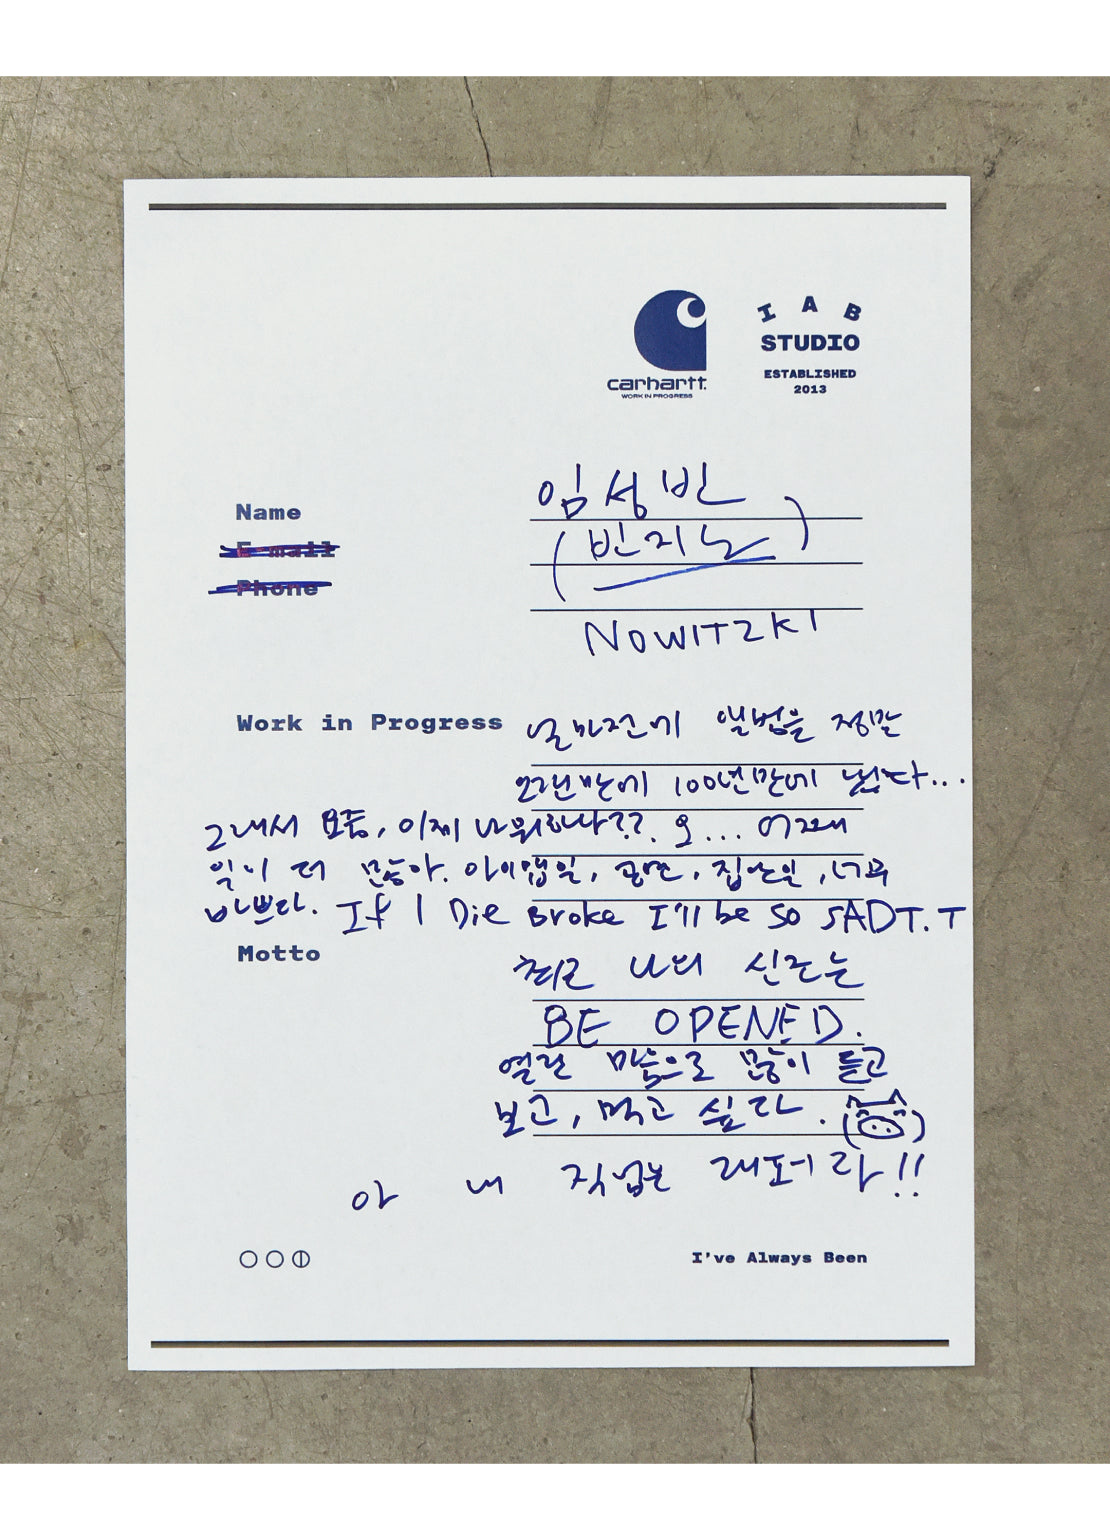 carhartt
WORK IN PROGRESS
I A B
STUDIO
ESTABLISHED
2013
Name
임성빈
E-mail
(빈지노)
Phone
NOWITZKI
Work in Progress
얼마전에 앨범을 정말
22년만에 100년만에 냈다...
그래서 요즘, 이제 나 뭐하나??. 오... 어쩌면
일이 더 많아. 아이앱일, 공연, 집안일, 너무
바쁘다. If I Die Broke I'll be so SAD T.T
Motto
최근 나의 신조는
BE OPENED.
열린 마음으로 많이 듣고
보고, 먹고 싶다.
아 내 직업는 래퍼라!!
I've Always Been